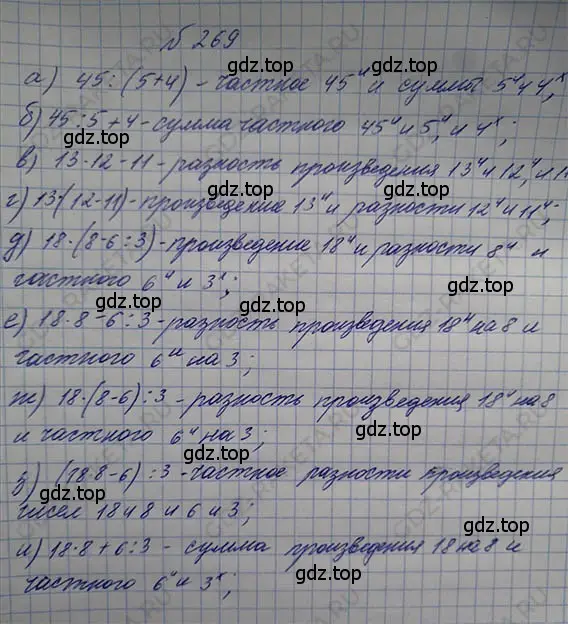 № 269
а) 45:(5+4) - частное 45и и суммы 5и и 4х;
б) 45:5+4 - сумма частного 45и и 5, и 4х;
в) 13·12-11 - разность произведения 13и и 12, и 11
г) 13(12-11) - произведение 13и и разности 12и и 11и;
д) 18·(8-6:3) - произведение 18и и разности 8и и
частного 6и и 3х;
е) 18·8-6:3 - разность произведения 18и на 8 и
частного 6и на 3;
ж) 18·(8-6):3 - разность произведения 18и на 8
и частного 6и на 3;
з) (18·8-6):3 - частное разности произведения
чисел 18 и 8 и 6 и 3;
и) 18·8+6:3 - сумма произведения 18 на 8 и
частного 6и и 3х;
gdz.top
gdz.top
gdz.top
gdz.top
gdz.top
gdz.top
gdz.top
gdz.top
gdz.top
gdz.top
gdz.top
gdz.top
gdz.top